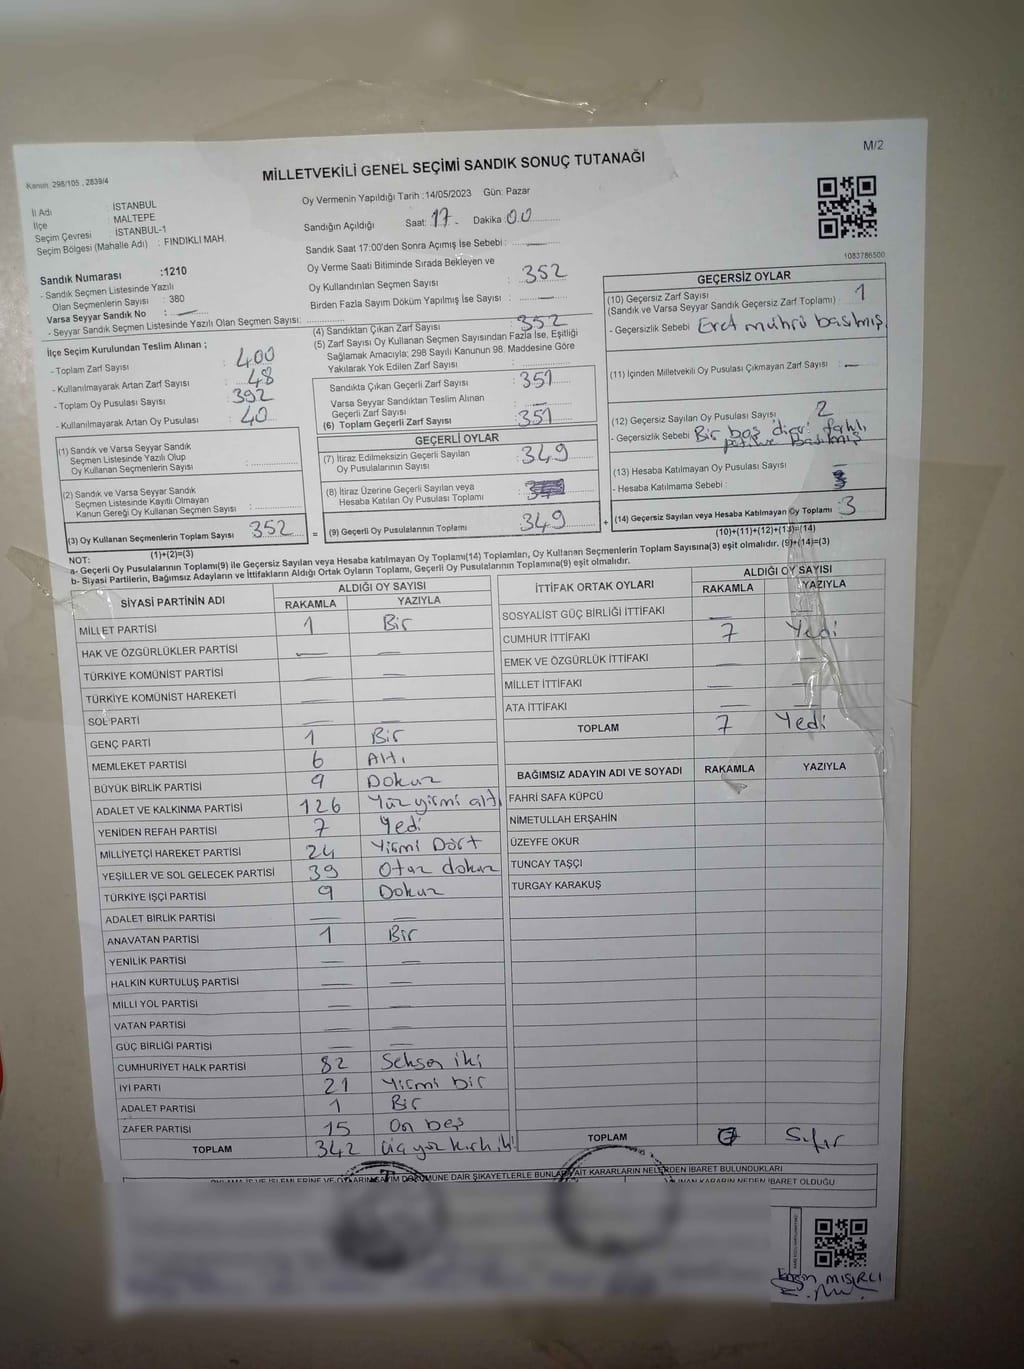 M/2
MİLLETVEKİLİ GENEL SEÇİMİ SANDIK SONUÇ TUTANAĞI
Kanun: 298/105 , 2839/4
İl Adı : İSTANBUL
İlçe : MALTEPE
Seçim Çevresi : İSTANBUL-1
Seçim Bölgesi (Mahalle Adı) : FINDIKLI MAH.
Sandık Numarası :1210
- Sandık Seçmen Listesinde Yazılı
Olan Seçmenlerin Sayısı : 380
Varsa Seyyar Sandık No : —
- Seyyar Sandık Seçmen Listesinde Yazılı Olan Seçmen Sayısı:
Oy Vermenin Yapıldığı Tarih :14/05/2023 Gün: Pazar
Sandığın Açıldığı Saat: 17 Dakika 00
Sandık Saat 17:00'den Sonra Açımış İse Sebebi : —
Oy Verme Saati Bitiminde Sırada Bekleyen ve
Oy Kullandırılan Seçmen Sayısı : 352
Birden Fazla Sayım Döküm Yapılmış İse Sayısı : —
1083786500
İlçe Seçim Kurulundan Teslim Alınan ;
- Toplam Zarf Sayısı : 400
- Kullanılmayarak Artan Zarf Sayısı : 48
- Toplam Oy Pusulası Sayısı : 392
- Kullanılmayarak Artan Oy Pusulası : 40
(1) Sandık ve Varsa Seyyar Sandık
Seçmen Listesinde Yazılı Olup
Oy Kullanan Seçmenlerin Sayısı :
(2) Sandık ve Varsa Seyyar Sandık
Seçmen Listesinde Kayıtlı Olmayan
Kanun Gereği Oy Kullanan Seçmen Sayısı :
(3) Oy Kullanan Seçmenlerin Toplam Sayısı 352
(1)+(2)=(3)
(4) Sandıktan Çıkan Zarf Sayısı : 352
(5) Zarf Sayısı Oy Kullanan Seçmen Sayısından Fazla İse, Eşitliği
Sağlamak Amacıyla; 298 Sayılı Kanunun 98. Maddesine Göre
Yakılarak Yok Edilen Zarf Sayısı :
Sandıkta Çıkan Geçerli Zarf Sayısı : 351
Varsa Seyyar Sandıktan Teslim Alınan
Geçerli Zarf Sayısı :
(6) Toplam Geçerli Zarf Sayısı : 351
GEÇERLİ OYLAR
(7) İtiraz Edilmeksizin Geçerli Sayılan
Oy Pusulalarının Sayısı : 349
(8) İtiraz Üzerine Geçerli Sayılan veya
Hesaba Katılan Oy Pusulası Toplamı :
= (9) Geçerli Oy Pusulalarının Toplamı : 349
GEÇERSİZ OYLAR
(10) Geçersiz Zarf Sayısı : 1
(Sandık ve Varsa Seyyar Sandık Geçersiz Zarf Toplamı)
- Geçersizlik Sebebi : Evet mührü basılmış
(11) İçinden Milletvekili Oy Pusulası Çıkmayan Zarf Sayısı : —
(12) Geçersiz Sayılan Oy Pusulası Sayısı : 2
- Geçersizlik Sebebi : Bir boş diğeri farklı
basılmış
(13) Hesaba Katılmayan Oy Pusulası Sayısı :
- Hesaba Katılmama Sebebi :
+ (14) Geçersiz Sayılan veya Hesaba Katılmayan Oy Toplamı : 3
(10)+(11)+(12)+(13)=(14)
NOT:
a- Geçerli Oy Pusulalarının Toplamı(9) ile Geçersiz Sayılan veya Hesaba katılmayan Oy Toplamı(14) Toplamları, Oy Kullanan Seçmenlerin Toplam Sayısına(3) eşit olmalıdır. (9)+(14)=(3)
b- Siyasi Partilerin, Bağımsız Adayların ve İttifakların Aldığı Ortak Oyların Toplamı, Geçerli Oy Pusulalarının Toplamına(9) eşit olmalıdır.
SİYASİ PARTİNİN ADI ALDIĞI OY SAYISI
RAKAMLA YAZIYLA
MİLLET PARTİSİ 1 Bir
HAK VE ÖZGÜRLÜKLER PARTİSİ — —
TÜRKİYE KOMÜNİST PARTİSİ — —
TÜRKİYE KOMÜNİST HAREKETİ — —
SOL PARTİ — —
GENÇ PARTİ 1 Bir
MEMLEKET PARTİSİ 6 Altı
BÜYÜK BİRLİK PARTİSİ 9 Dokuz
ADALET VE KALKINMA PARTİSİ 126 Yüz yirmi altı
YENİDEN REFAH PARTİSİ 7 Yedi
MİLLİYETÇİ HAREKET PARTİSİ 24 Yirmi Dört
YEŞİLLER VE SOL GELECEK PARTİSİ 39 Otuz dokuz
TÜRKİYE İŞÇİ PARTİSİ 9 Dokuz
ADALET BİRLİK PARTİSİ — —
ANAVATAN PARTİSİ 1 Bir
YENİLİK PARTİSİ — —
HALKIN KURTULUŞ PARTİSİ — —
MİLLİ YOL PARTİSİ — —
VATAN PARTİSİ — —
GÜÇ BİRLİĞİ PARTİSİ — —
CUMHURİYET HALK PARTİSİ 82 Seksen iki
İYİ PARTİ 21 Yirmi bir
ADALET PARTİSİ 1 Bir
ZAFER PARTİSİ 15 On beş
TOPLAM 342 Üçyüz kırk iki
İTTİFAK ORTAK OYLARI ALDIĞI OY SAYISI
RAKAMLA YAZIYLA
SOSYALİST GÜÇ BİRLİĞİ İTTİFAKI — —
CUMHUR İTTİFAKI 7 Yedi
EMEK VE ÖZGÜRLÜK İTTİFAKI — —
MİLLET İTTİFAKI — —
ATA İTTİFAKI — —
TOPLAM 7 Yedi
BAĞIMSIZ ADAYIN ADI VE SOYADI RAKAMLA YAZIYLA
FAHRİ SAFA KÜPCÜ
NİMETULLAH ERŞAHİN
ÜZEYFE OKUR
TUNCAY TAŞÇI
TURGAY KARAKUŞ
TOPLAM 0 Sıfır
DÖKÜMÜNE DAİR ŞİKAYETLERLE BUNLARA AİT KARARLARIN NELERDEN İBARET BULUNDUKLARI
KARARIN NEDEN İBARET OLDUĞU
MISIRLI